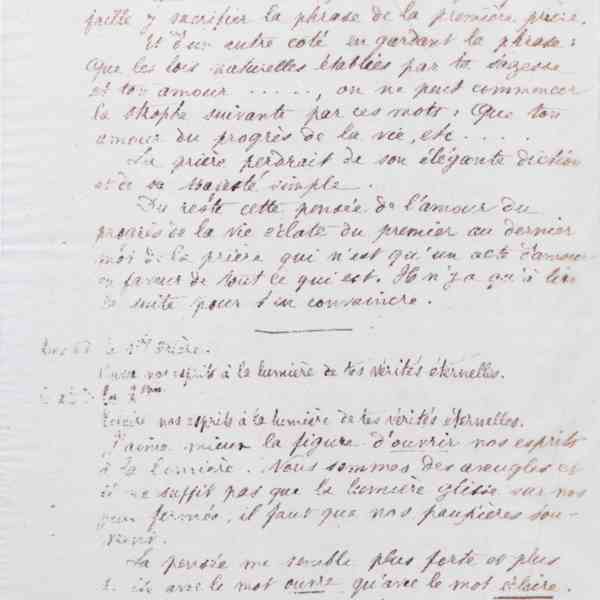 y sacrifier la phrase de la première prière.
Et d'un autre coté en gardant la phrase:
Que les lois naturelles établies par ta sagesse
et ton amour . . . . . , on ne peut commencer
la strophe suivante par ces mots: Que ton
amour du progrès de la vie, etc . . . .
La prière perdrait de son élégante diction
et de sa majesté simple.
Du reste cette pensée de l'amour du
progrès de la vie éclate du premier au dernier
mot de la prière qui n'est qu'un acte d'amour
en faveur de tout ce qui est. Il n'y a qu'à lire
la suite pour s'en convaincre.
la prière.
nos esprits à la lumière de tes vérités éternelles.
La 2
Éclaire nos esprits à la lumière de tes vérités éternelles.
J'aime mieux la figure d'ouvrir nos esprits
à la lumière. Nous sommes des aveugles et
il ne suffit pas que la lumière glisse sur nos
yeux fermés, il faut que nos paupières s'ou-
vrent.
La pensée me semble plus forte et plus
avec le mot ouvre qu'avec le mot éclaire.